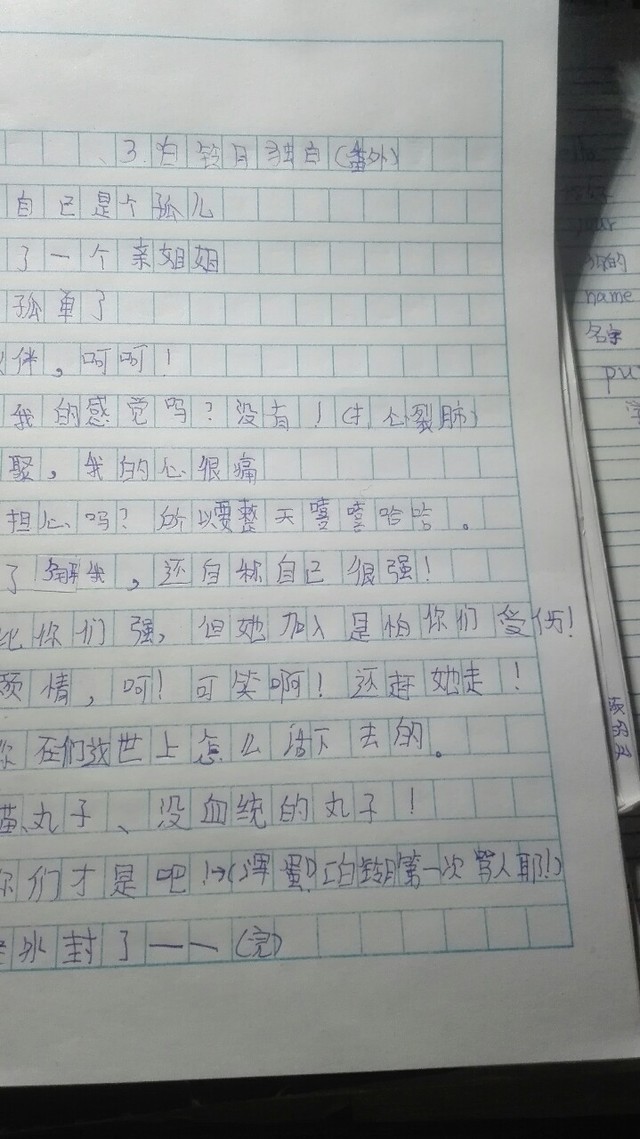 3.白铃月独白(番外)
自己是个孤儿
了一个亲姐姐
孤单了
伴,呵呵!
我的感觉吗?没有!(心裂肺)
聚,我的心很痛
担心吗?所以要整天嘻嘻哈哈。
了解我,还自称自己很强!
比你们强,但她加入是怕你们受伤!
领情,呵!可笑啊!还赶她走!
你们在世上怎么活下去的。
猫、丸子、没血统的丸子!
你们才是吧!→(浑蛋!)白铃月第一次骂人耶!)
冰封了——(完)
你的
name
名字
pu